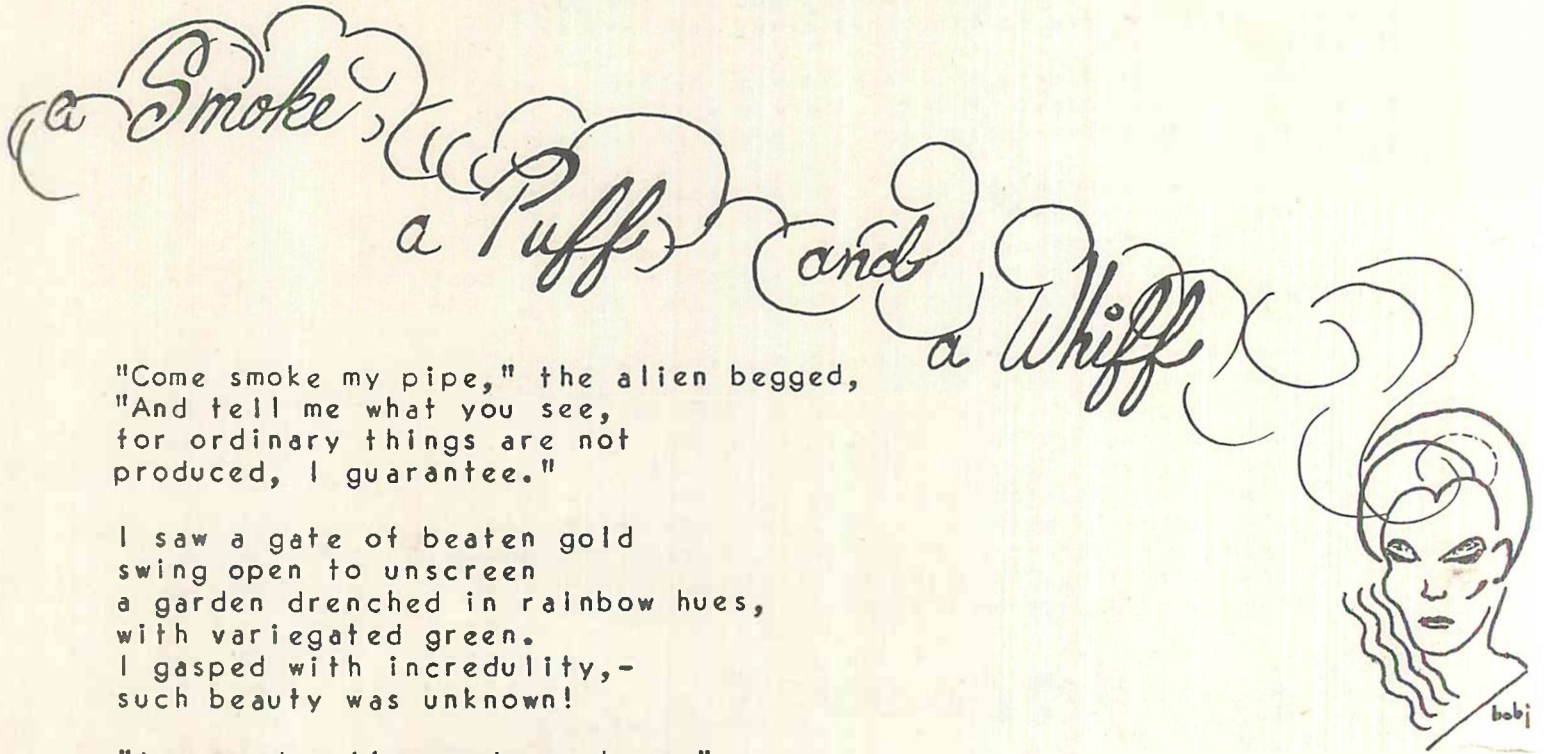 a Smoke,
a Puff,
and
a Whiff
"Come smoke my pipe," the alien begged,
"And tell me what you see,
for ordinary things are not
produced, I guarantee."
I saw a gate of beaten gold
swing open to unscreen
a garden drenched in rainbow hues,
with variegated green.
I gasped with incredulity,-
such beauty was unknown!
bobj